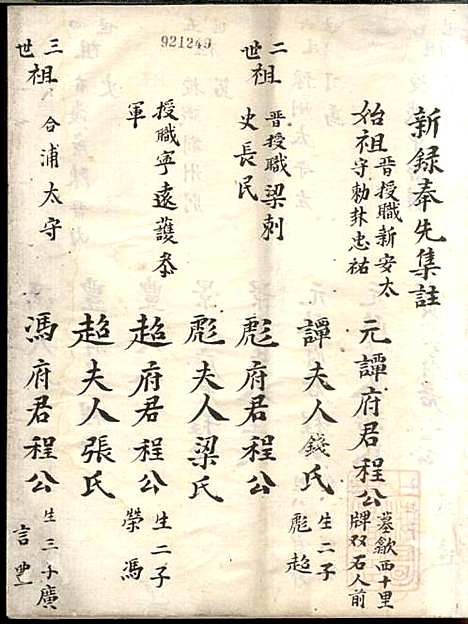 921249
新録奉先集註
始祖 晋授職新安太守勅葬忠祐
元譚府君程公 墓歙西十里牌双石人前
譚夫人錢氏 生二子 彪 超
二世祖 晋授職梁刺史長民
彪府君程公
彪夫人梁氏
授職寧遠護叅軍
超府君程公 生二子 榮 馮
超夫人張氏
三世祖 合浦太守
馮府君程公 生三子 廣 言